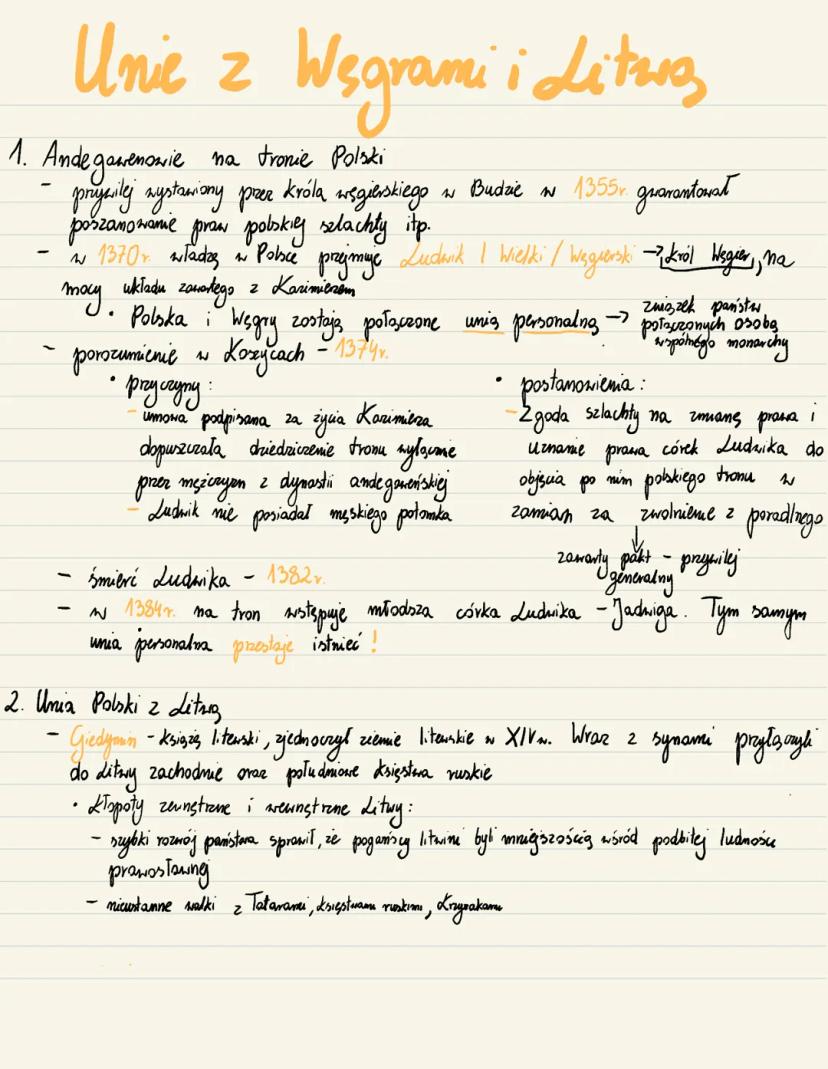 Unie z Węgrami i Litwą
1. Andegawenowie na tronie Polski
- przywilej wystawiony przez króla węgierskiego w Budzie w 1355r. gwarantował
poszanowanie praw polskiej szlachty itp.
- w 1370r. władzę w Polsce przejmuje Ludwik I Wielki / Węgierski → król Węgier, na
mocy układu zawartego z Kazimierzem
• Polska i Węgry zostają połączone unią personalną → związek państw
połączonych osobą
wspólnego monarchy
- porozumienie w Koszycach - 1374r.
• przyczyny:
- umowa podpisana za życia Kazimierza
dopuszczała dziedziczenie tronu wyłącznie
przez mężczyzn z dynastii andegaweńskiej
- Ludwik nie posiadał męskiego potomka
• postanowienia:
- Zgoda szlachty na zmianę prawa i
uznanie prawa córek Ludwika do
objęcia po nim polskiego tronu w
zamian za zwolnienie z poradlnego
↓
zawarty pakt - przywilej
generalny
- śmierć Ludwika - 1382r.
- w 1384r. na tron wstępuje młodsza córka Ludwika - Jadwiga. Tym samym
unia personalna przestaje istnieć!
2. Unia Polski z Litwą
- Giedymin - książę litewski, zjednoczył ziemie litewskie w XIVw. Wraz z synami przyłączyli
do Litwy zachodnie oraz południowe księstwa ruskie
• kłopoty zewnętrzne i wewnętrzne Litwy:
- szybki rozwój państwa sprawił, że pogańscy litwini byli mniejszością wśród podbitej ludności
prawosławnej
- nieustanne walki z Tatarami, księstwami ruskimi, Krzyżakami